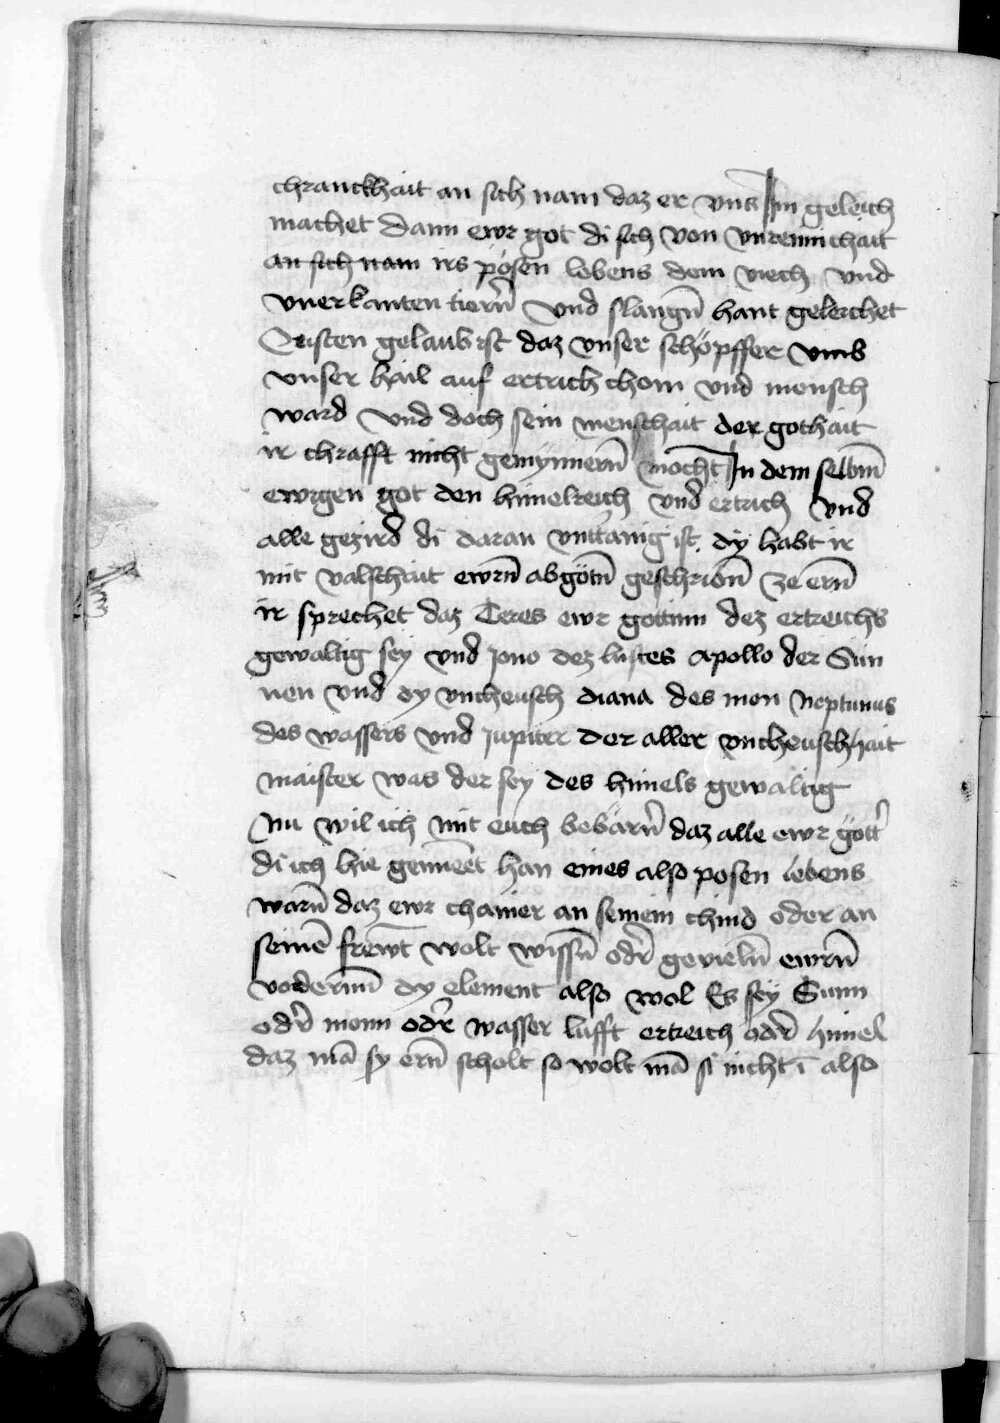 chranckhait an sich nam daz er vns Im geleich
machet dann ewr got di sich von vnrennichait
an sich nam irs pösen lebens dem viech vnd
vnerkanten tiern̄ vnd slangn̄ hant geleichet
Disten gelaub ist daz vnser schöpffer vmb
vnser hail auf ertrich chom vnd mensch
ward vnd doch sein menschait der gothait
ir chrafft nicht gemynnern̄ mocht In dem selbm̄
ewigen got den himelreich vnd ertrich vnd
alle gezird di daran vntt͛anig ist. dy habt ir
mit valschait ewrn̄ abgötn̄ geschribn̄ ze ern̄
ir sprechet daz Ceres ewr gottinn dez ertreichs
gewaltig sey vnd Jono dez luftes apollo der Sun
nen vnd dy vncheusch diana des mon Neptunus
des wassers vnd Jupiter der aller vncheuschhait
maister was der sey des himels gewaltig
Nu wil ich mit euch bebärn̄ daz alle ewr gött͛
di ich hie genn̄eet han eines also posen lebens
warn̄ daz ewr chainer an seinem chind oder an
seinē frewt wolt wissn̄ od͛ geuieln̄ ewrn̄
vodernn̄ dy element also wol Es sey Sunn
od͛ monn od͛ wasser lufft ertreich od͛ himel
daz mā sy ern̄ scholt so wolt mā si nicht ī also